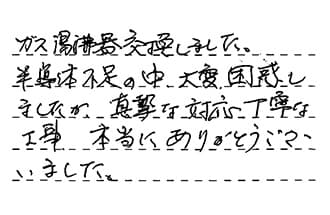 ガス湯沸器交換しました。
半導体不足の中、大変困惑し
ましたが、真摯な対応、丁寧な
工事、本当にありがとうござ
いました。